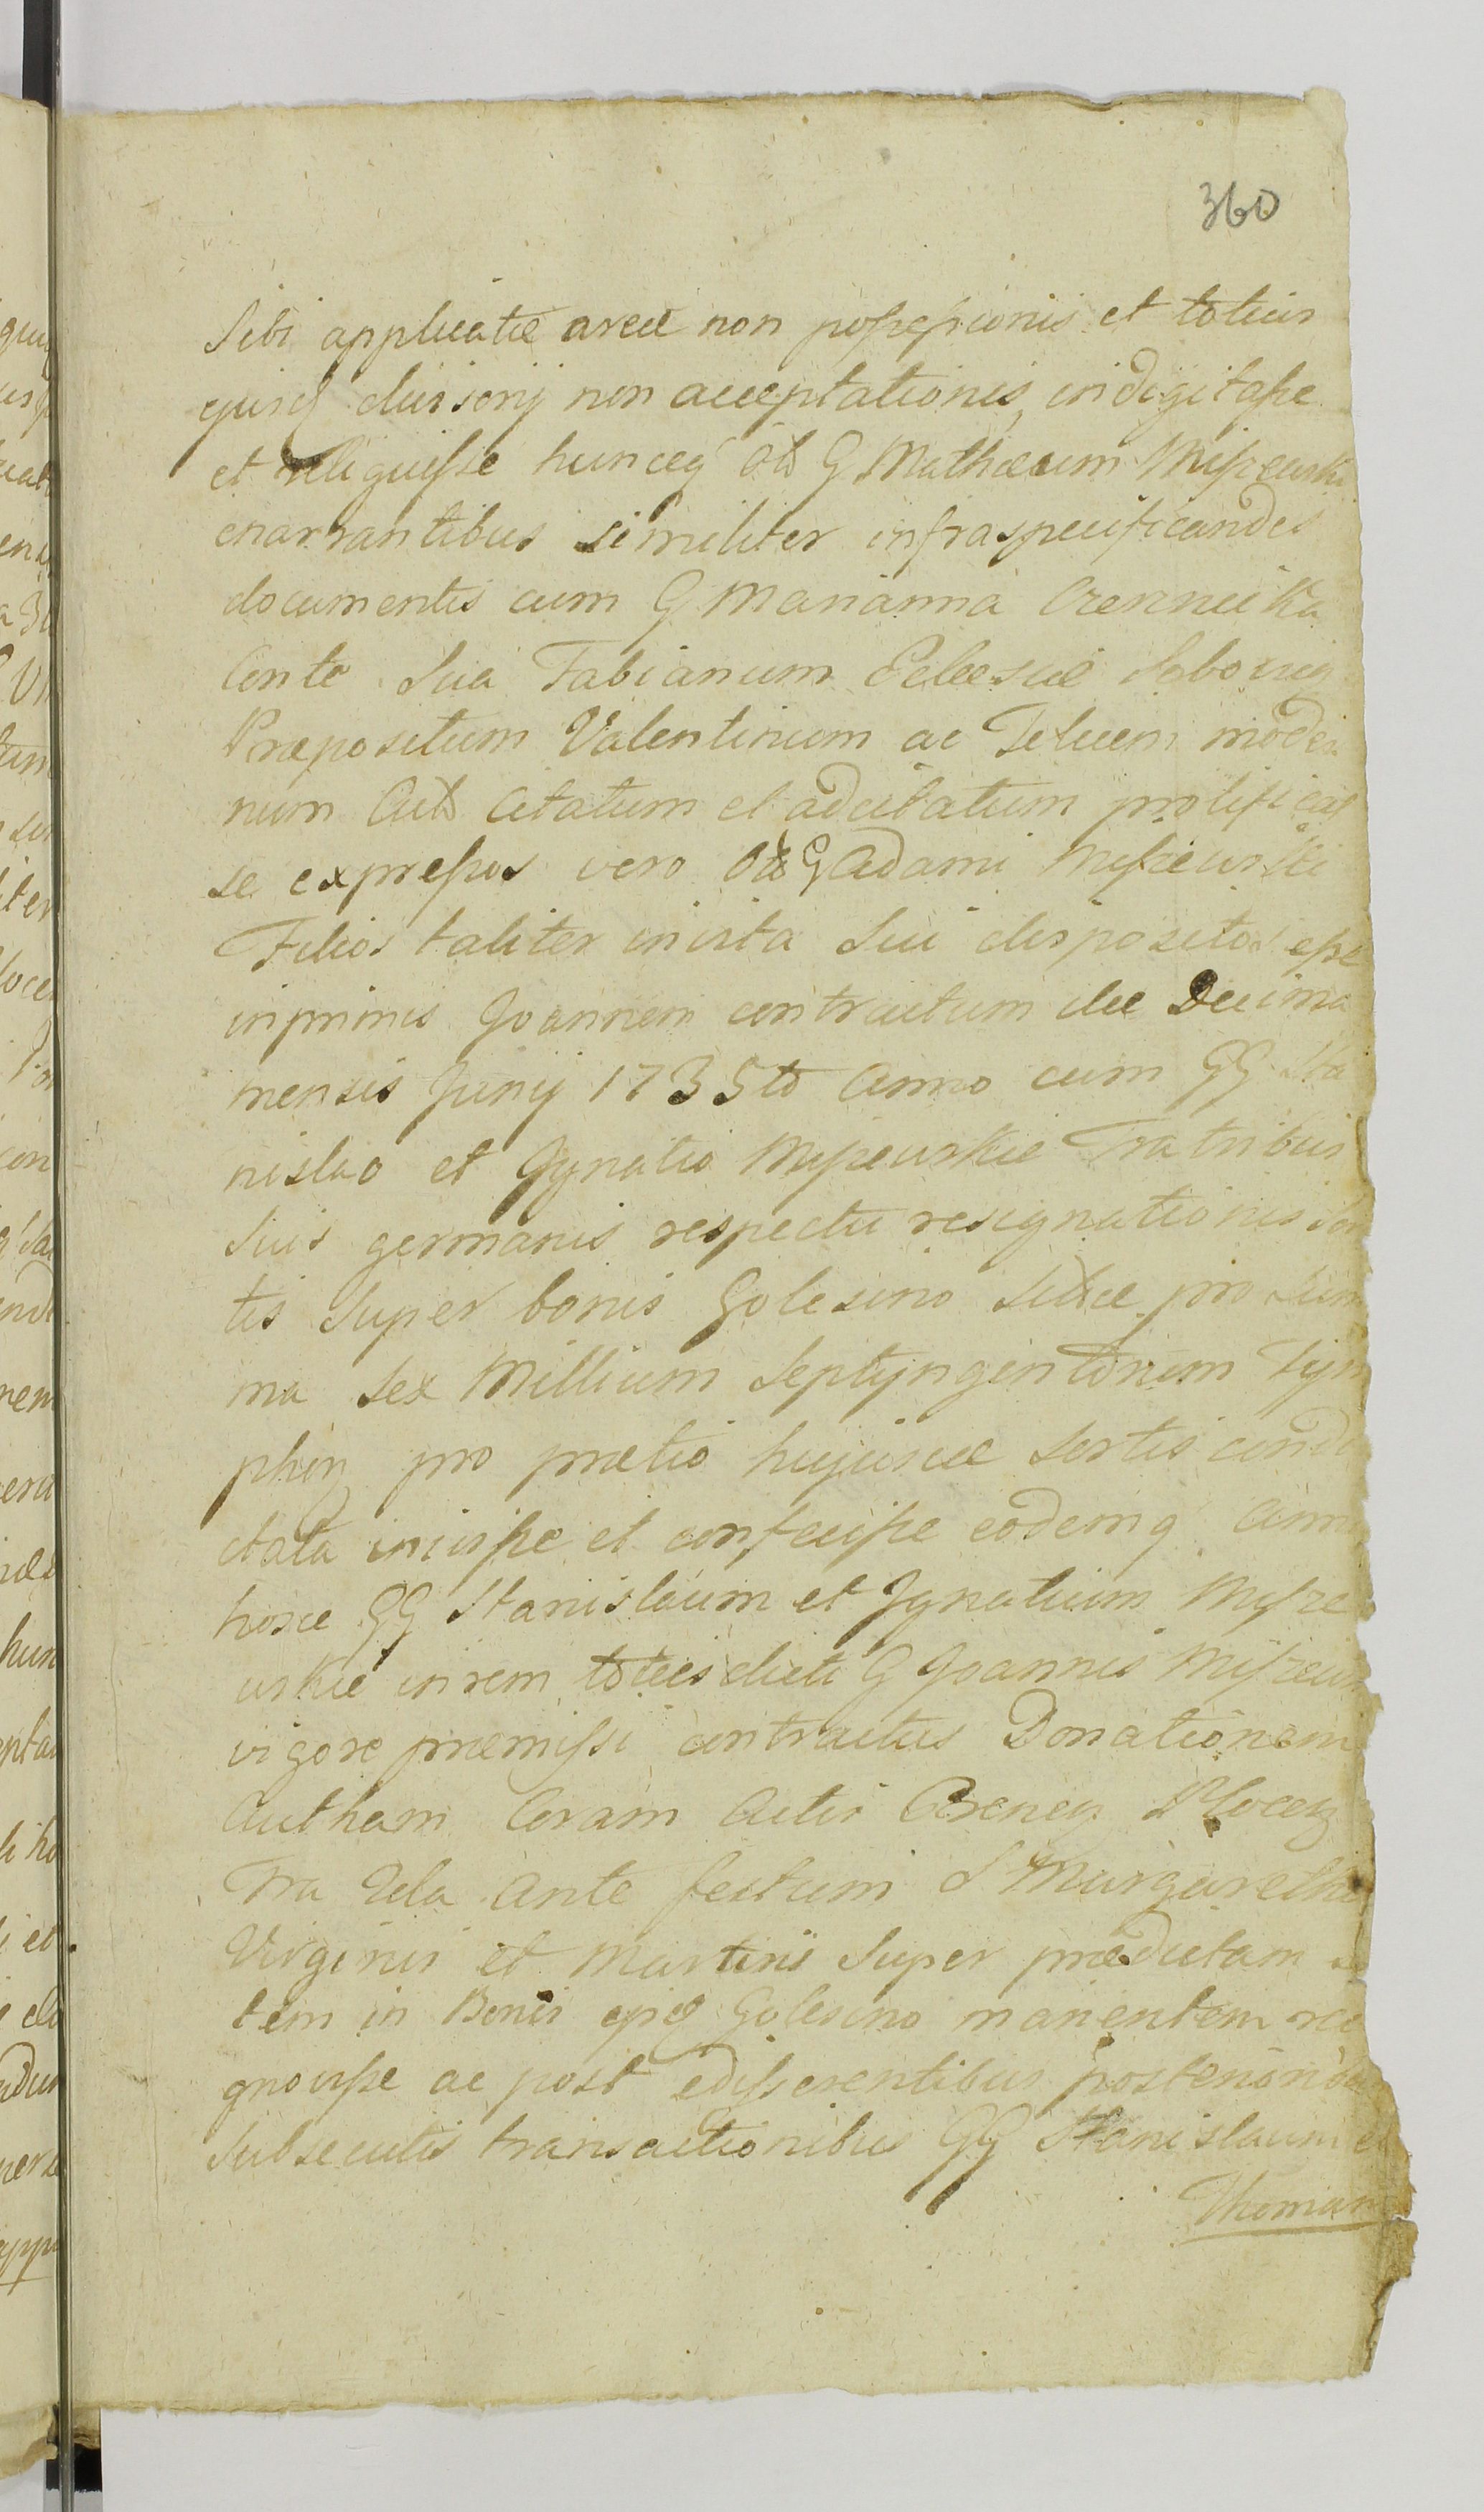 360
Sibi applicatæ areæ non possessionis et toties
ejusq divisorij non acceptationis indigitasse
et reliquisse huncq olt G Mathæum Miszewski
enarrantibus similiter infraspecificandis
documentis cum G Marianna Czernicka
Conte Sua Fabianum Ecclesiæ
Præpositum Valentinum ac Felicem moder
num Actt Citatum et adcitatum prolificas
se expressos vero olt G Adami Miszewski
Filios taliter invita Sui dispositos esse
inprimis Joannem contractum die Decima
mensis Junij 1735to Anno cum GG Sta
nislao et Jgnatio Miszewskie Fratribus
Suis germanis respectu resignationis Sor
tis Super bonis Golesino sitæ pro Sum
ma Sex Millium Septyngentorum Tym
phoꝝ pro prætio hujusce Sortis condi
ctata inivisse et confecisse eodemq Anno
hosce GG Stanislaum et Jgnatium Misze
wskie in rem toties dicti G Joannis Miszews
vigore præmissi contractus Donationem
Autham Coram Actis Plocen
Fra 2da Ante festum S Margarethæ
Virginis et Martiris Super prædictam
tem in Bonis ejsq Golesino manentem reco
gnovisse ac post edisserentibus posteriorib
Subsecutis transactionibus GG Stanislaum et
Thomam